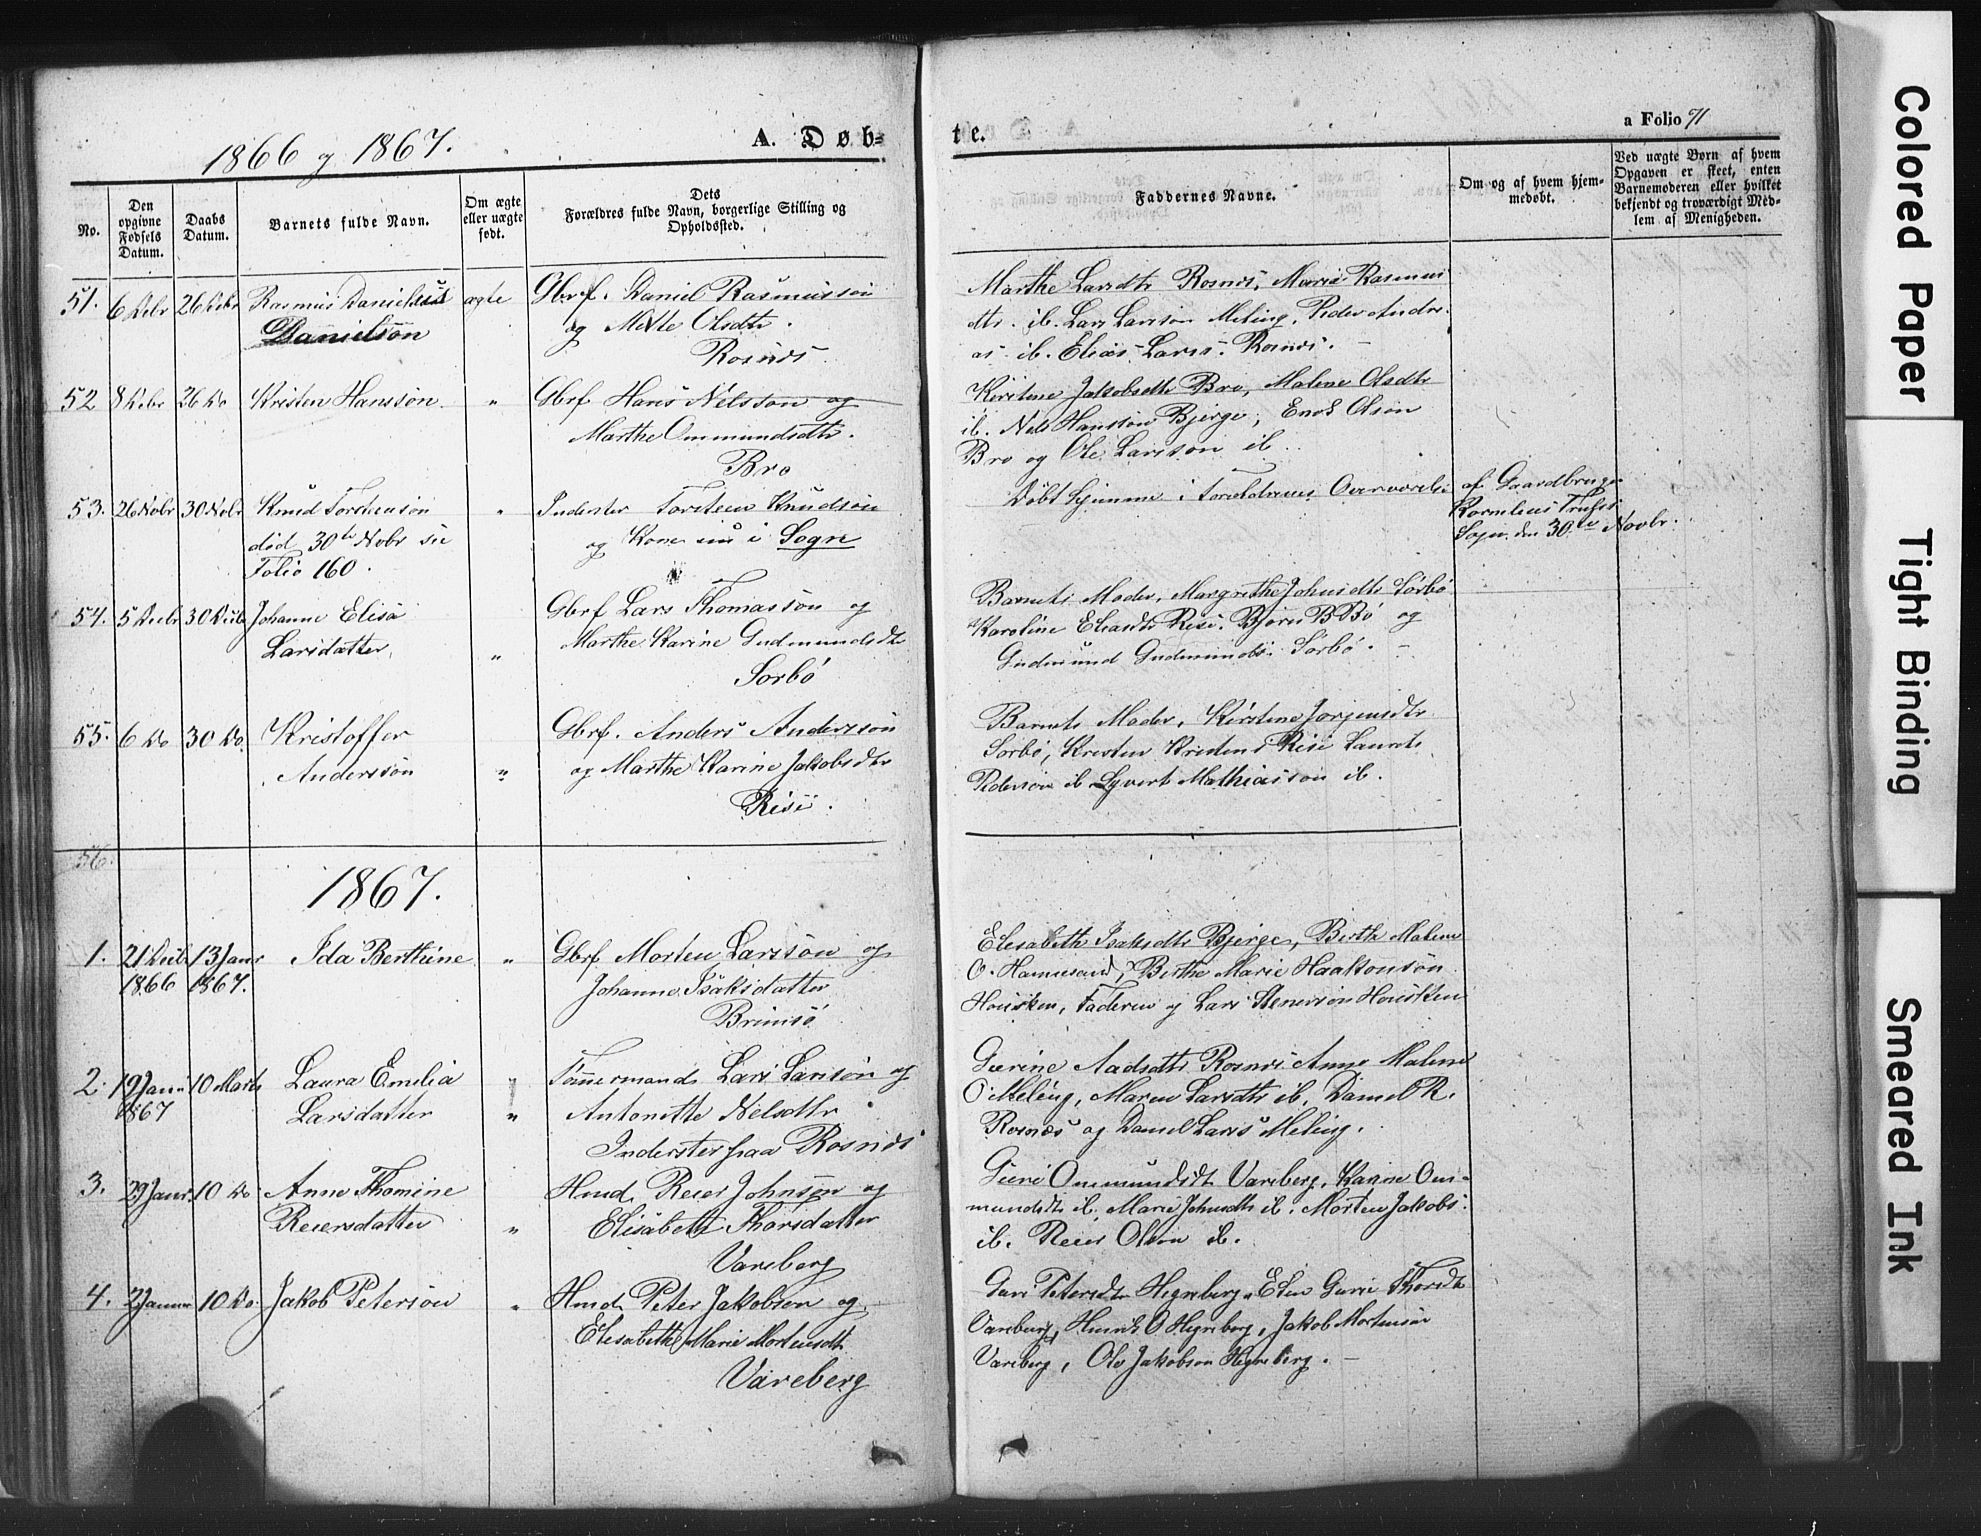 1866 og 1867.
A. Døb-
te.
a Folio 71
No.
Den opgivne Fødsels Datum.
Daabs Datum.
Barnets fulde Navn.
Om ægte eller uægte født.
Dets Forældres fulde Navn, borgerlige Stilling og Opholdssted.
Faddernes Navne.
Om og af hvem hjemmedøbt.
Ved uægte Børn af hvem Opgaven er skeet, enten Barnemoderen eller hvilket bekjendt og troværdigt Medlem af Menigheden.
51. 6 Debr 26 Debr Rasmus ægte Gbrf. Daniel Rasmusson
Danielson og Mette Olsdtr.
Rosnæs
Marthe Larsdtr Rosnæs, Maria Rasmus
dtr. ib. Lars Larsson Meling, Peder Andre-
as ib. Elias Lars. Rosnæs.
52 8 Debr 26 Do Kristen Hansson. " Gbrf Hans Nilsson og
Marthe Ommundsdtr.
Bro
Kirstene Jakobsdtr Bro, Malene Olsdtr
ib. Nels Hansson Bjerge, Enok Olson
Bro og Ole Larsson ib.
53. 26 Nobr 30 Nobr Knud Torstenson " Inderster Torsteen Knudson
død 30te Nobr sie og Kone nu i Sogn
Folio 160.
Døbt hjemme i Foreldrenes Overværelse
af Gaardbruger
Kornelius
Sogn den 30te Novbr.
54. 5 Decbr 30 Decb Johanne Elisa Gbrf Lars Thomasson og
Larsdatter, " Marthe Karine Gudmundsdtr
Sørbø
Barnets Moder, Margrethe Johnsdtr Sørbø
Karoline Eliasdtr Risi. Bjørn B Bø og
Gudmund Gudmunds. Sørbø.
55. 6 Do 30 Do. Kristoffer Gbrf. Anders Andersson
Andersson " og Marthe Karine Jakobsdtr
Risi.
Barnets Moder, Kirstine Jørgensdtr
Sørbø, Kresten Kristens Risi Laurits
Pederson ib Syvert Mathiasson ib.
56.
1867.
1. 21 Decb 13 Janr Ida Berthine " Gbrf Morten Larsson og
1866 1867. Johanne Isaksdatter
Brimsø
Elisabeth Isaksdtr Bjerge, Berthe Malene
O. Hanasand, Berthe Marie Haakonson
Housken, Faderen og Lars Stenerson Housken
2. 19 Janu 10 Marts Laura Emelia " Tømmermand Lars Larson og
1867 Larsdatter " Antonette Nilsdtr.
Inderster paa Rosnæs
Gurine Aadsdtr Rosnæs Anne Malene
O Meling, Maren Larsdtr ib. Daniel R.
Rosnæs og Daniel Lars Meling.
3. 29 Janr. 10 Do Anne Thomine Hmd. Reier Johnson og
Reiersdatter " Elisabeth Thorsdatter
Vareberg
Guri Ommundsdt Vareberg, Karine Om-
mundsdt ib, Marie Johnsdtr ib. Morten Jakobs:
ib. Reier Olson ib.
4. 2 Januar 10 Do. Jakob Peterson " Hmd. Peter Jakobsen og
Elisabeth Marie Mortensdt
Vareberg
Guri Petersdtr Hegreberg, Elen Gurie Thorsdt
Vareberg, Henrik O Hegreberg, Jakob Mortenson
Vareberg, Ole Jakobson Hegreberg.
Colored Paper
Tight Binding
Smeared Ink